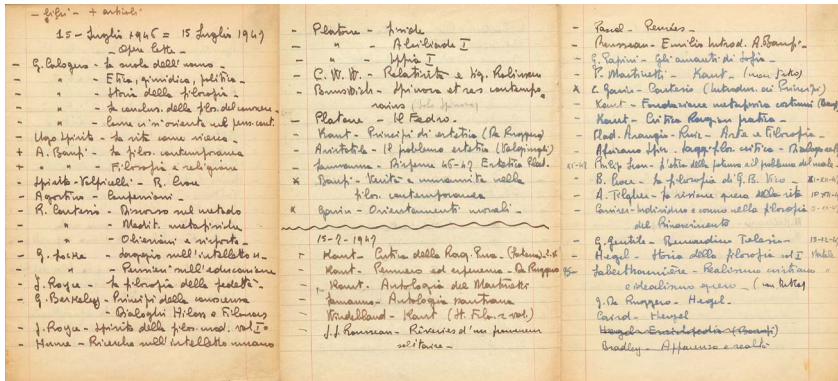 - libri - + articoli
15 - Luglio 1946 = 15 Luglio 1947
- Opere lette -
- G. Calogero - La scuola dell'uomo -
- " - Etica, giuridica, politica -
- " - Storia della filosofia -
- " - La conclus. della filos. del conoscere
- " - Come ci si orienta nel pens. cont.
- Ugo Spirito - La vita come ricerca -
+ A. Banfi - La filos. contemporanea
+ " - Filosofia e religione
- Spirito - Volpicelli - B. Croce
- Agostino - Confessioni -
- R. Cartesio - Discorso sul metodo
- " - Medit. metafisiche
- " - Obiezioni e risposte -
- G. Locke - Saggio sull'intelletto u.
- " - Pensieri sull'educazione
- J. Royce - La filosofia della fedeltà -
- G. Berkeley - Principi della conoscenza
- Dialoghi Hilas e Filonous
- J. Royce - Spirito della filos. mod. vol. I
- Hume - Ricerche sull'intelletto umano
- Platone - Liside
- " - Alcibiade I
- " - Ippia I
- C. W. W. -
- Brunswich - Spinoza et ses contempo
rains
- Platone - Il Fedro -
- Kant - Principi di estetica (De Ruggero)
- Aristotele - Il problema estetico (Valgimigli)
- Dispense 46-47 Estetica
x Banfi - Verità e umanità nella
filos. contemporanea
x Garin - Orientamenti morali -
15-7-1947
Kant - Critica della Rag. Pura
Kant - Pensiero ed esperienza - De Ruggero
Kant - Antologia del Martinetti
- Antologia kantiana
Windelband - Kant (St. Filos. 2 vol.)
J. J. Rousseau - Rêveries d'un promeneur
solitaire -
- Pascal - Pensées -
- Rousseau - Emilio Introd. A. Banfi -
- G. Papini - Gli amanti di Sofia -
- P. Martinetti - Kant -
x E. Garin - Cartesio (Introduz. ai Principi)
- Kant - Fondazione metafisica costumi
Kant - Critica Ragion pratica -
- Vlad. Arangio - Ruiz - Arte e Filosofia -
- Saggi filos. critico - Dialogo
Philip Leon - L'etica della potenza o il problema del male -
- B. Croce - La filosofia di G. B. Vico -
- A. Tilgher - La visione greca della vita
- Cassirer - Individuo e cosmo nella filosofia
del Rinascimento
- G. Gentile - Bernardino Telesio -
- Hegel - Storia della filosofia vol. I Natale
- Laberthonnière - Realismo cristiano
e idealismo greco -
- G. De Ruggero - Hegel -
- Caird - Hegel
Hegel - Enciclopedia (Banfi)
Bradley - Apparenza e realtà